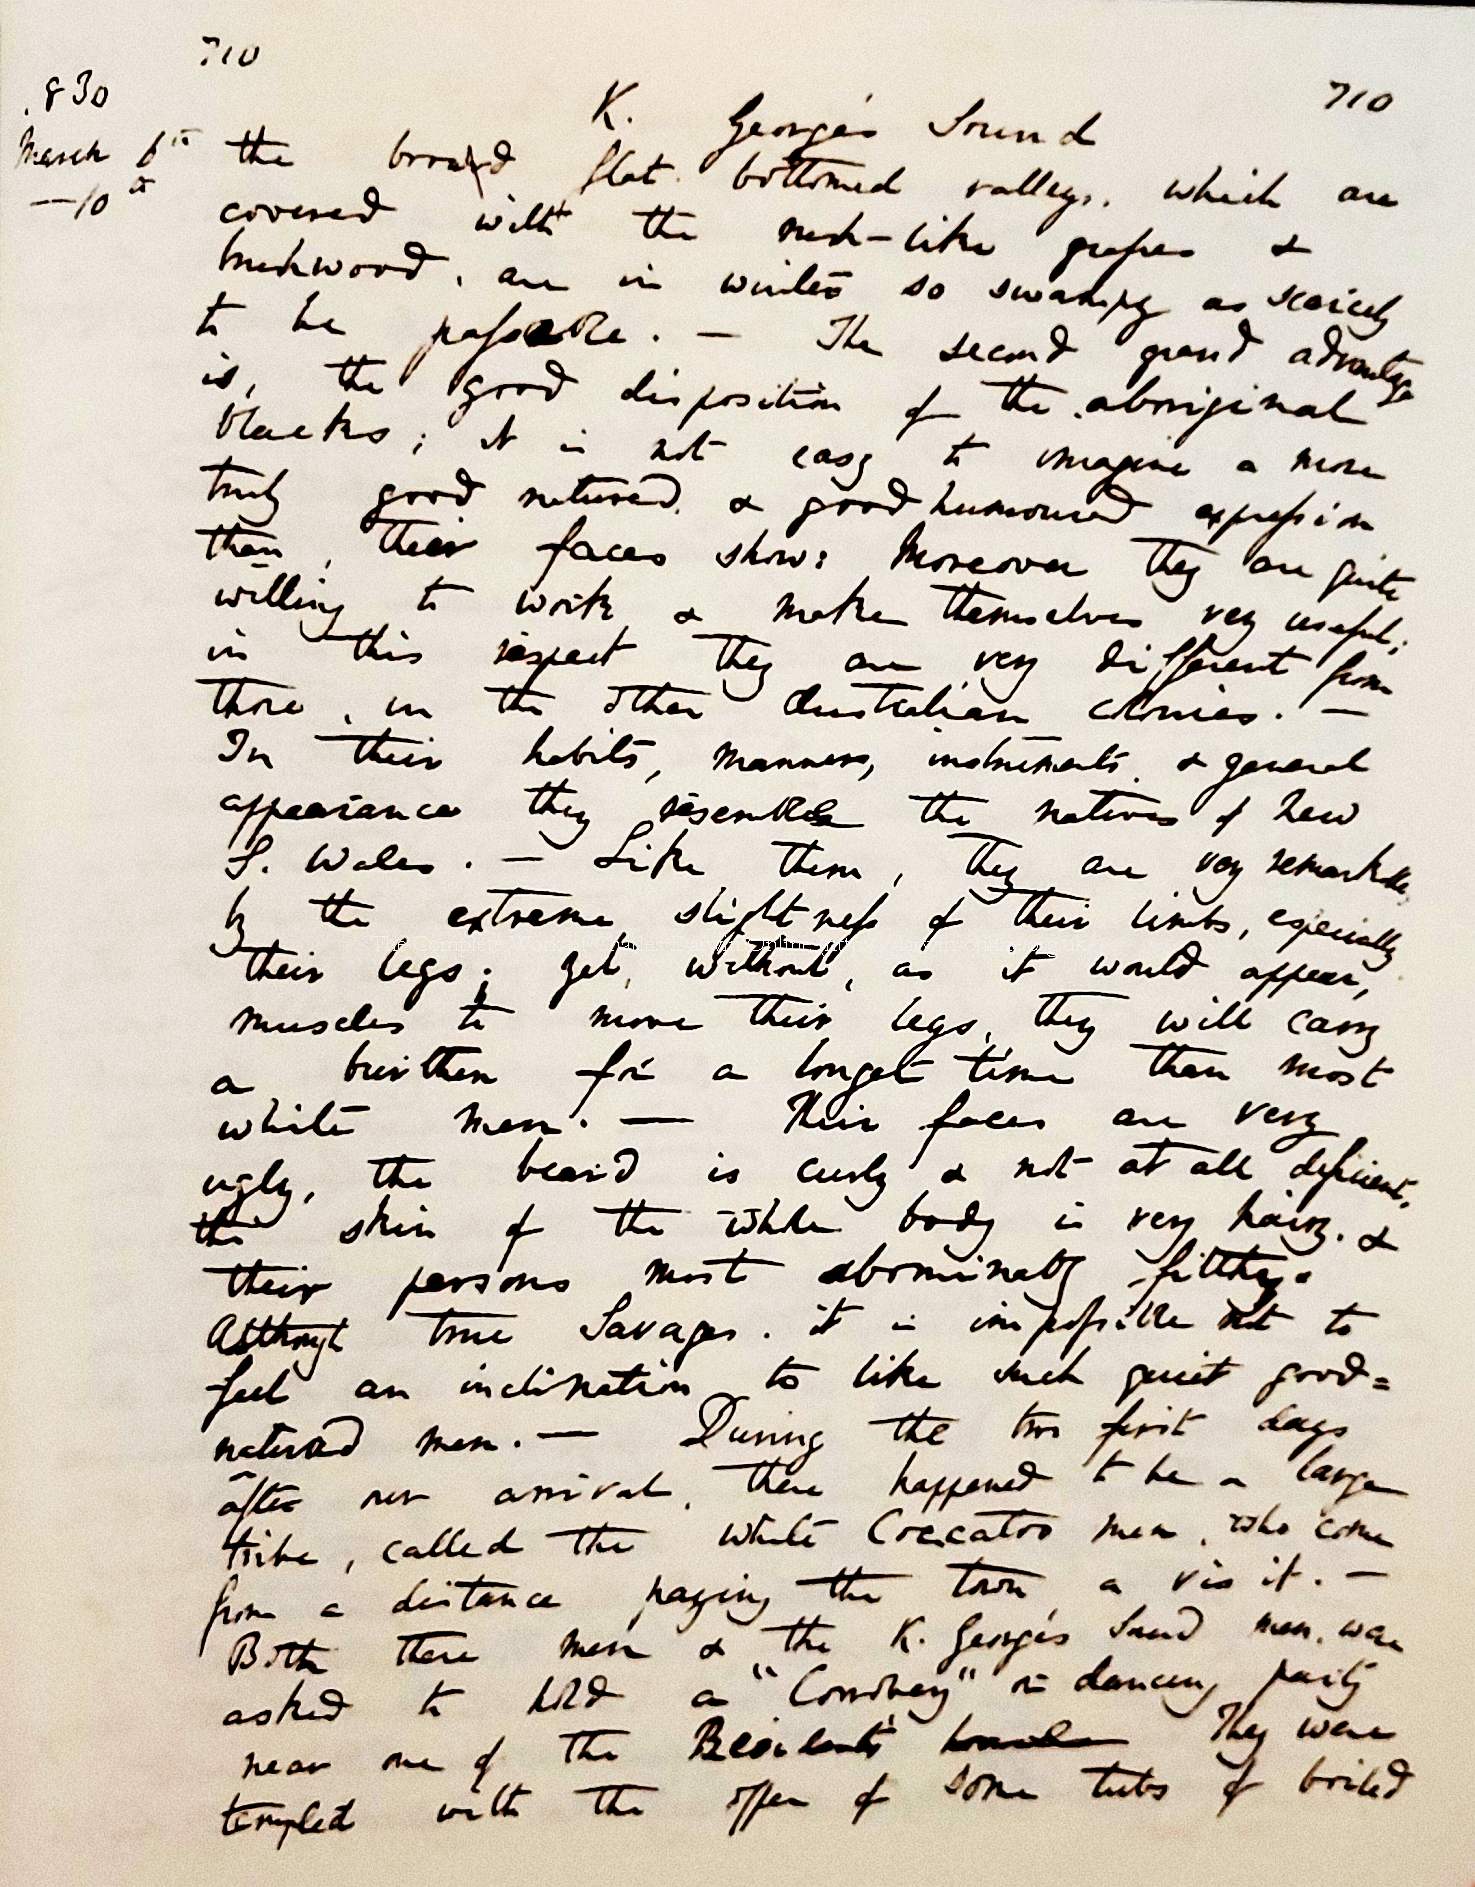 710
710
830
K. George's Sound
March 6th
—10th
the broad flat bottomed valleys, which are
covered with the rush-like grasses &
brushwood, are in winter so swampy as scarcely
to be passable. — The second grand advantage
is, the good disposition of the aboriginal
blacks; it is not easy to imagine a more
truly good natured & good humoured expression
than, their faces show: Moreover they are quite
willing to work & make themselves very useful;
in this respect they are very different from
those, in the other Australian colonies. —
In their habits, manners, instruments & general
appearance they resemble the natives of New
S. Wales. — Like them, they are very remarkable
by the extreme slightness of their limbs, especially
their legs; yet, without, as it would appear,
muscles to move their legs, they will carry
a burthen for a longer time than most
white men. — Their faces are very
ugly, the beard is curly & not at all deficient,
the skin of the whole body is very hairy, &
their persons most abominably filthy.
Although true Savages, it is impossible not to
feel an inclination to like such quiet good=
natured men. — During the two first days
after our arrival, there happened to be a large
tribe, called the White Coccatoo men, who come
from a distance paying the town a visit. —
Both these men & the K. George's Sound men, were
asked to hold a "Corrobery" or dancing party
near one of the Residents' They were
tempted with the offer of some tubs of boiled